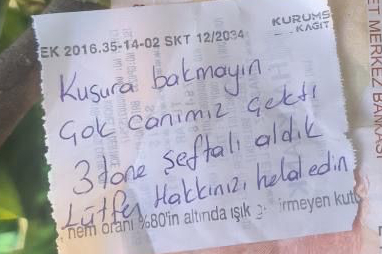 KURUMS
KAĞIT
EK 2016.35-14-02 SKT 12/2034
Kusura bakmayın
Çok canımız çekti
3 tane şeftali aldık
Lütfen Hakkınızı helal edin
nem oranı %80'in altında ışık irmeyen kutu
ET MERKEZ BANKASI